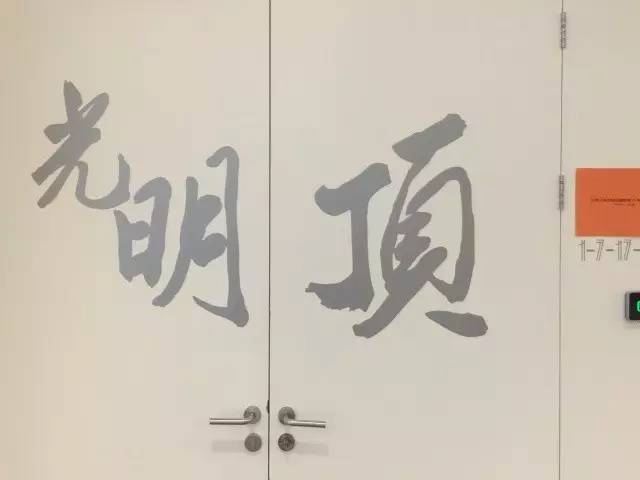 光明頂
1-7-17-